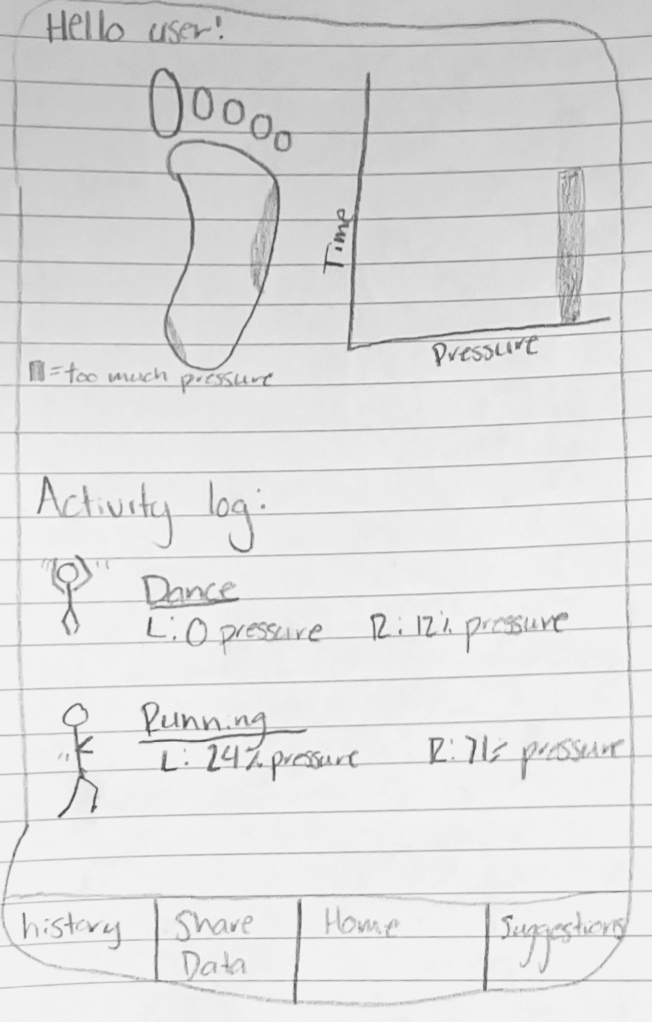 Hello user!
Time
Pressure
= too much pressure
Activity log:
Dance
L: 0 pressure R: 12% pressure
Running
L: 24% pressure R: 71% pressure
history
Share
Data
Home
Suggestions